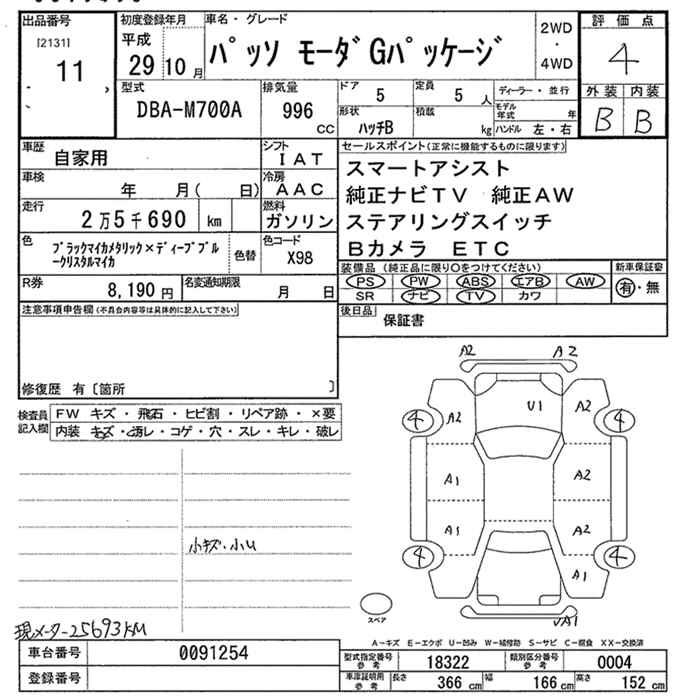 出品番号 初度登録年月 車名・グレード 2WD ・ 4WD 評価点
[2131] 11 平成 29 10月 パッソ モーダGパッケージ 4
型式 排気量 ドア 5 定員 5人 ディーラー・並行 外装 内装
DBA-M700A 996 CC 形状 ハッチB 積載 kg モデル年式 年 ハンドル 左・右 B B
車歴 自家用 シフト IAT セールスポイント(正常に機能するものに限ります)
車検 年 月( 日) 冷房 AAC スマートアシスト
純正ナビTV 純正AW
走行 2万5千690 km 燃料 ガソリン ステアリングスイッチ
Bカメラ ETC
色 ブラックマイカメタリック×ディープブル
ークリスタルマイカ 色替 色コード X98
装備品(純正品に限り○をつけてください) 新車保証書
PS PW ABS エアB AW 有・無
SR ナビ TV カワ
R券 8,190円 名変通知期限 月 日
注意事項申告欄(不具合内容等は具体的に記入して下さい) 後日品 保証書
修復歴 有〔箇所 〕
検査員記入欄 FW キズ・飛石・ヒビ割・リペア跡・×要
内装 キズ・汚レ・コゲ・穴・スレ・キレ・破レ
A2 A2
U1
4 A2 A2 4
A1 A2
A1 A2
4 4
A1
小キズ・小U
スペア
A1
現メーター25693KM
A-キズ E-エクボ U-凹み W-補修跡 S-サビ C-腐食 XX-交換済
車台番号 0091254 型式指定番号 参考 18322 類別区分番号 参考 0004
登録番号 車庫証明用 参考 長さ 366 cm 幅 166 cm 高さ 152 cm